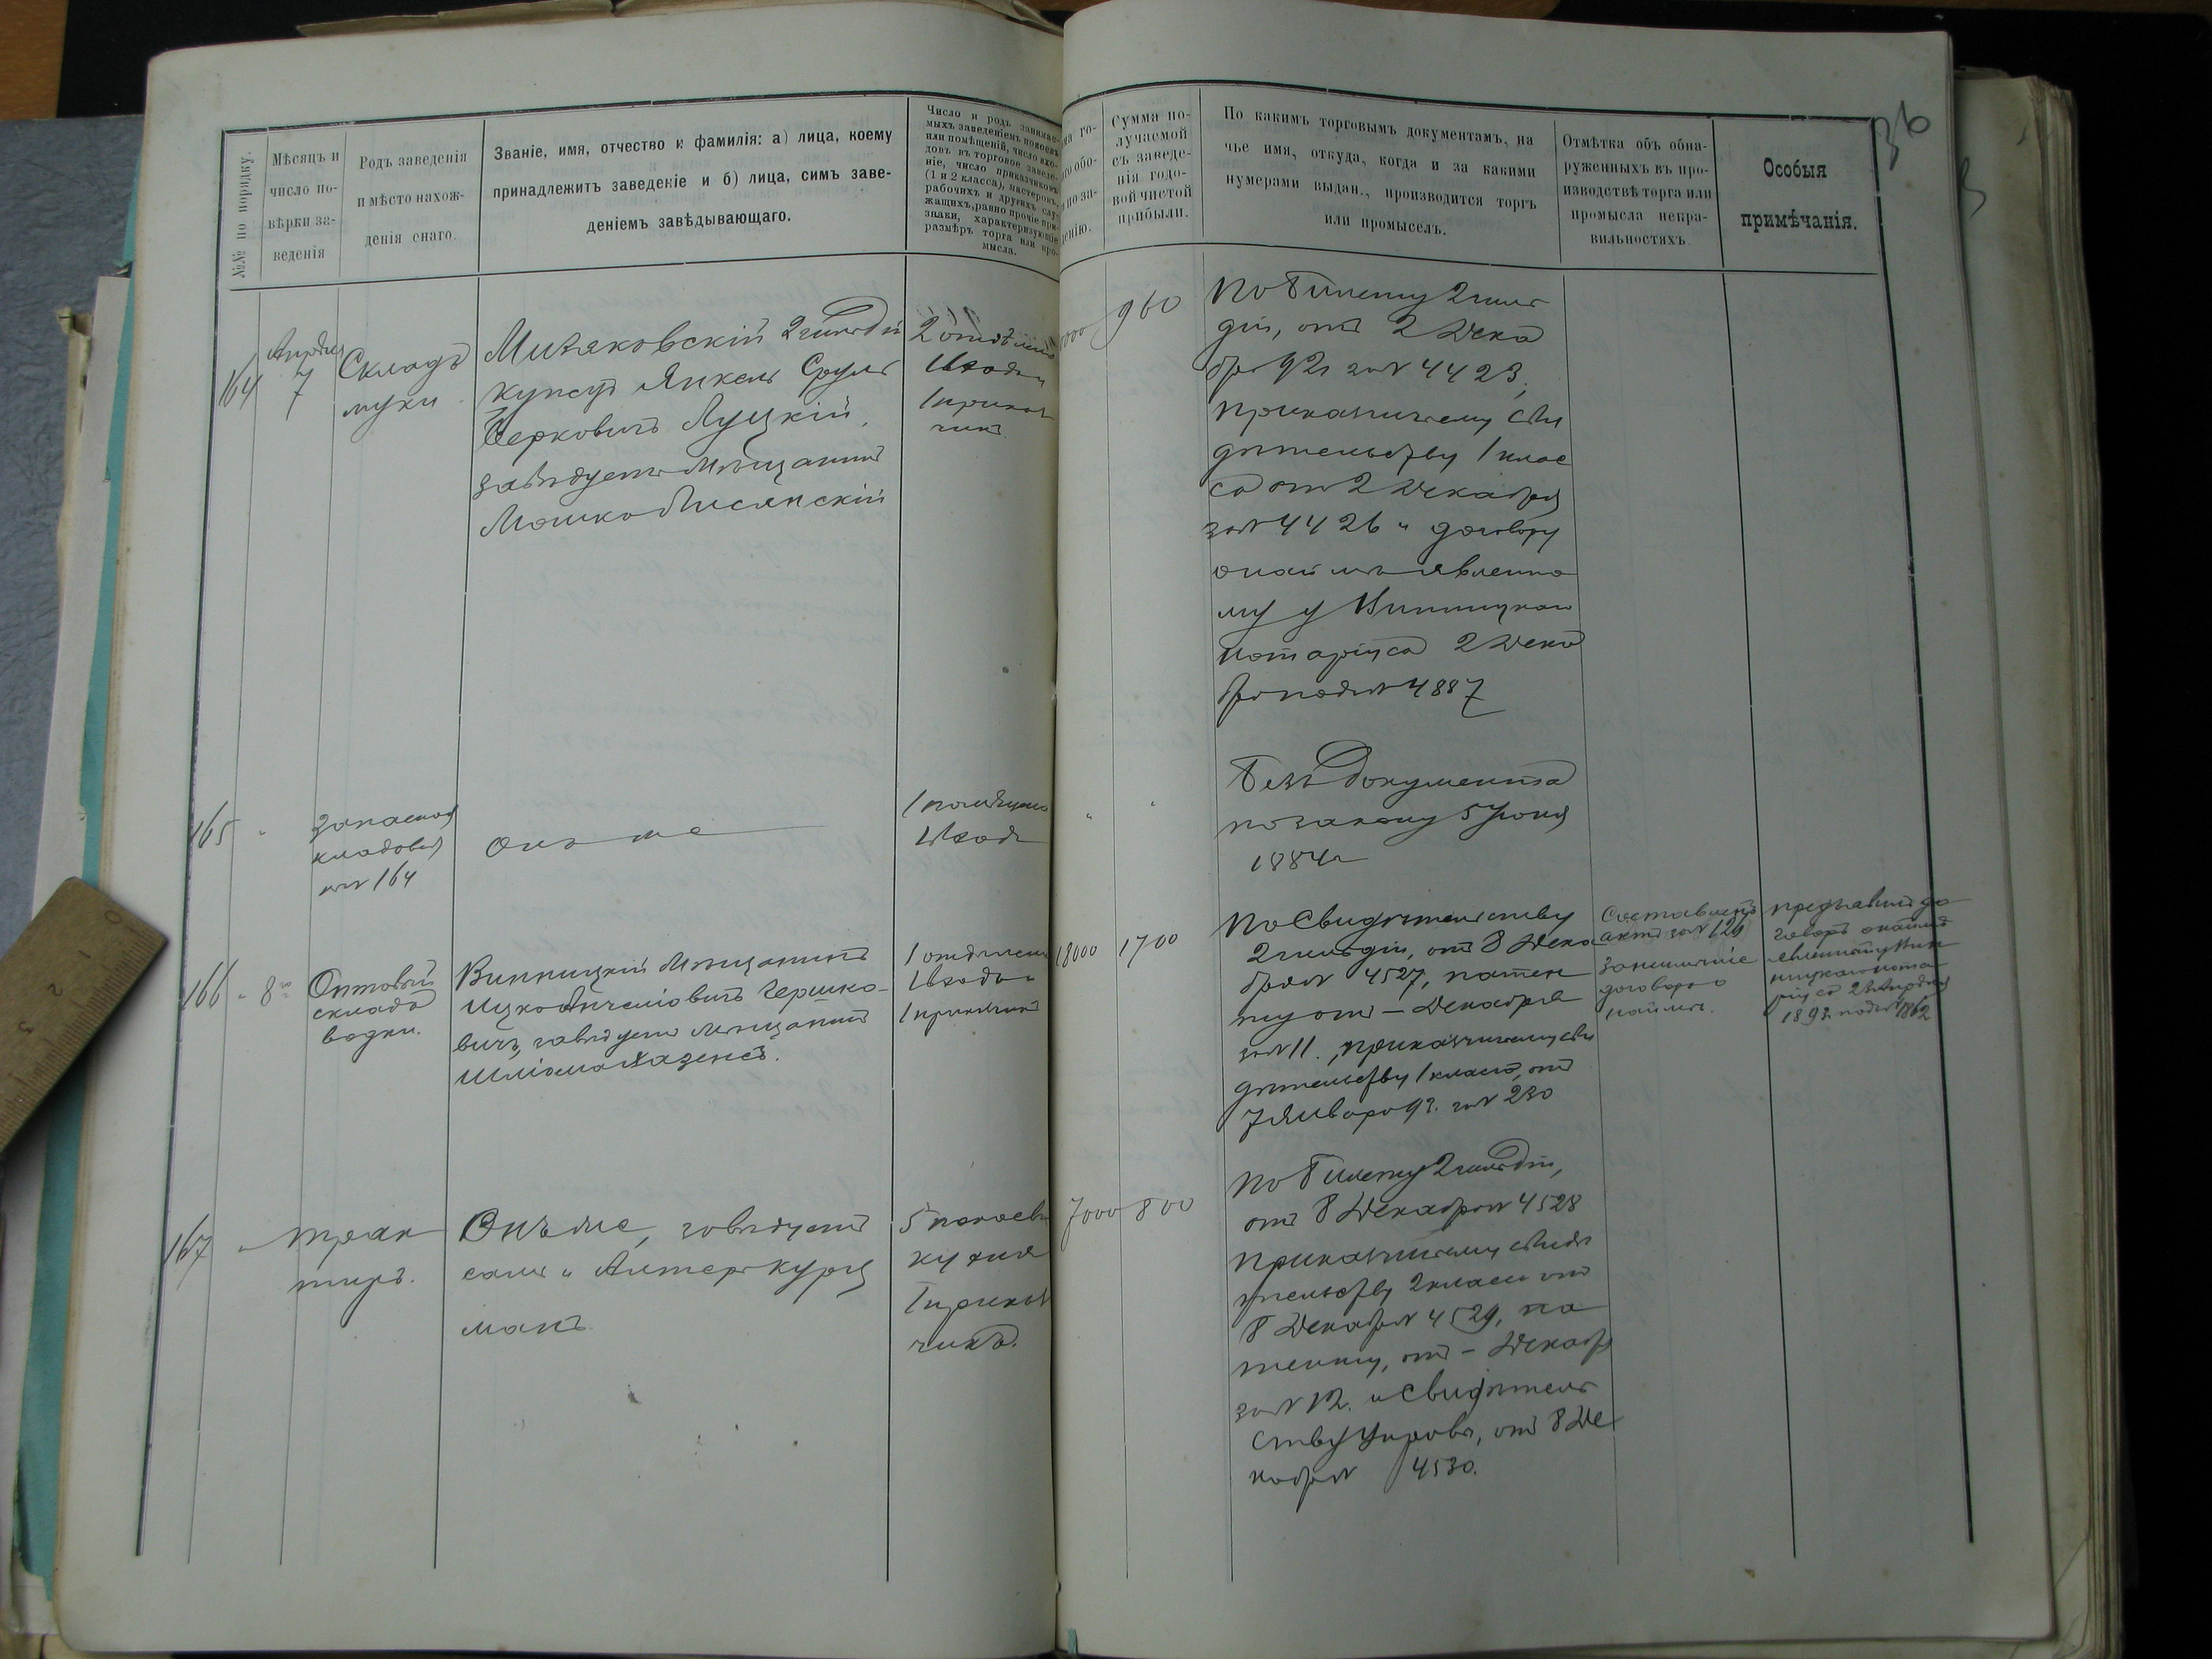 36
№№ по порядку.
Мѣсяцъ и
число по-
вѣрки за-
веденія
Родъ заведенія
и мѣсто нахож-
денія онаго.
Званіе, имя, отчество и фамилія: а) лица, коему
принадлежитъ заведеніе и б) лица, симъ заве-
деніемъ завѣдывающаго.
Число и родъ занимае-
мыхъ заведеніемъ покоевъ
или помѣщеній, число вхо-
довъ въ торговое заведе-
ніе, число приказчиковъ
(1 и 2 класса), мастеровъ,
рабочихъ и другихъ слу-
жащихъ, равно прочіе при-
знаки, характеризующіе
размѣръ торга или про-
мысла.
Сумма по-
лучаемой
съ заведе-
нія годо-
вой чистой
прибыли.
По какимъ торговымъ документамъ, на
чье имя, откуда, когда и за какими
нумерами выдан., производится торгъ
или промыселъ.
Отмѣтка объ обна-
руженныхъ въ про-
изводствѣ торга или
промысла непра-
вильностяхъ.
Особыя
примѣчанія.
164
Апрѣля
7
Складъ
муки
Мизяковскій 2 гильдіи
купецъ Янкель Сруль
Берковичъ Луцкій,
завѣдуетъ мѣщанинъ
Мошко Лисянскій
2 отдѣленія
1 входъ и
1 приказ
чикъ
960
По билету 2 гиль
діи, отъ 2 Дека
бря 92 г за № 4423,
приказчичьему сви
дѣтельству 1 клас
са отъ 2 Декабря
за № 4426 и договору
о наймѣ явленно
му у Винницкаго
нотаріуса 2 Дека
бря подъ № 4887
165 "
Запасная
кладовая
къ № 164
Онъ же
1 помѣщеніе
1 входъ
" "
Безъ документа
по закону 5 Іюня
1884 г
166 " 8 го
Оптовый
складъ
водки.
Винницкій мѣщанинъ
Ицко Анчеліовичъ Гершко-
вичъ, завѣдуетъ мѣщанинъ
Шліома Хазенъ.
1 отдѣленіе
1 входъ и
1 приказчикъ
18000
1700
По Свидѣтельству
2 гильдіи, отъ 8 Дека
бря № 4527, патен
ту отъ – Декабря
за № 11, приказчичьему сви
дѣтельству 1 класса, отъ
7 Января 93 г. за № 230
Составленъ
актъ за № 126
за неимѣніе
договора о
наймѣ.
предъявилъ до
говоръ о наймѣ
явленный у Вин
ницкаго нота
ріуса 23 Апрѣля
1893 подъ № 1862
167 "
трак
тиръ.
Онъ же, завѣдуетъ
самъ и Альтеръ Курц
манъ
5 покоевъ
кухня
1 приказ
чикъ.
7000
800
По билету 2 гильдіи,
отъ 8 Декабря № 4528
приказчичьему свидѣ
тельству 2 класса отъ
8 Декабря № 4529, па
тенту, отъ – Декабр
за № 12. и свидѣтель
ству Управы, отъ 8 Де
кабря № 4530.